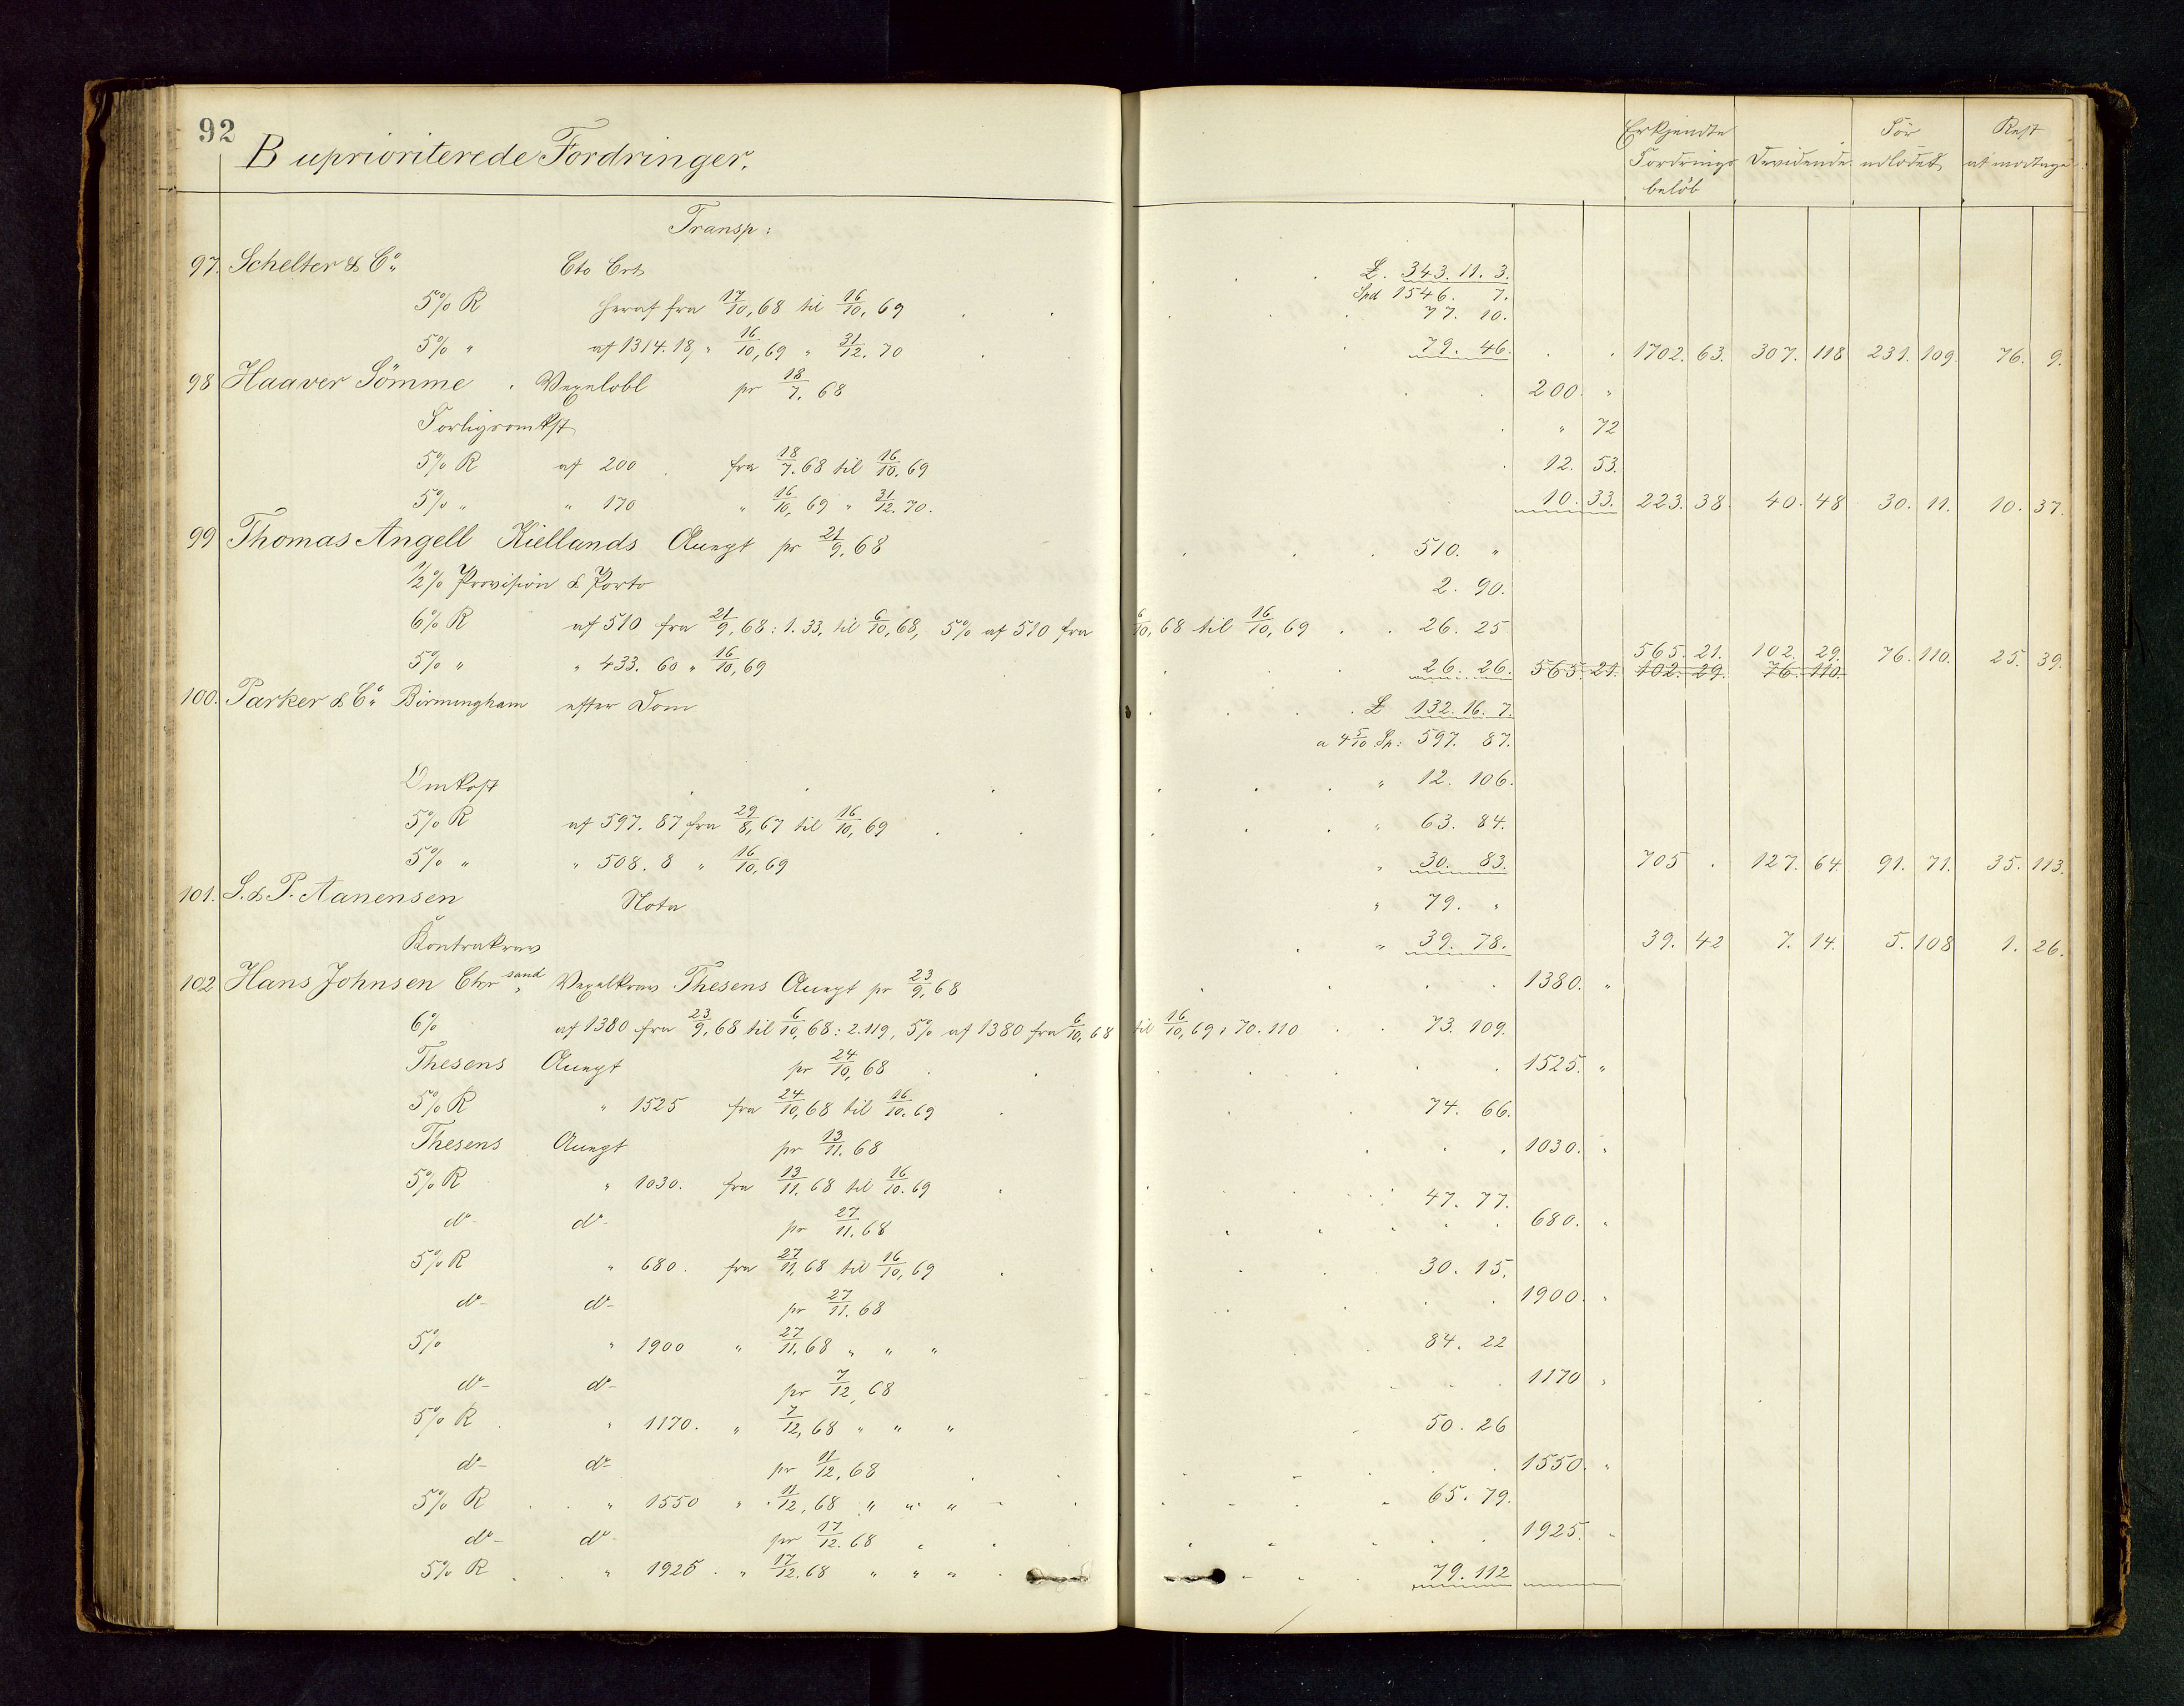 92
B uprioriterede Fordringer.
Erkjendte Fordrings beløb | Devidende | Før udlodet | Rest at modtage
Transp:
97. Schelter & Co. Cto Crt £. 343. 11. 3.
5% R heraf fra 17/10, 68 til 16/10, 69 Spd 1546. 7.
77. 10.
5% " af 1314. 18, " 16/10, 69 " 31/12. 70 79. 46. 1702. 63. 307. 118 231. 109. 76. 9.
98 Haaver Sömme. Vexelobl pr 18/7. 68 200. "
Forligsomkst " 72
5% R af 200 fra 18/7. 68 til 16/10. 69 12. 53.
5% " " 170 " 16/10, 69 " 31/12. 70. 10. 33. 223. 38. 40. 48 30. 11. 10. 37.
99 Thomas Angell Kiellands Accept pr 21/9. 68 510. "
1/2% Provision & Porto 2. 90.
6% R af 510 fra 21/9, 68: 1. 33, til 6/10, 68, 5% af 510 fra 6/10, 68 til 16/10, 69 26. 25
5% " " 433. 60 " 16/10, 69 26. 26. 565. 21. 102. 29. 76. 110.
565. 21. 102. 29. 76. 110. 25. 39.
100. Parker & Co. Birmingham efter Dom £ 132. 16. 7.
a 4 5/10 Sp: 597. 87.
Omkost " 12. 106.
5% R af 597. 87 fra 29/8, 67 til 16/10, 69 " 63. 84.
5% " " 508. 8 " 16/10, 69 " 30. 83. 705. 127. 64 91. 71. 35. 113.
101. S. & P. Aanensen Nota " 79. "
Kontrakrav " 39. 78. 39. 42 7. 14. 5. 108 1. 26.
102 Hans Johnsen Chrsand Vexelkrav Thesens Accept pr 23/9, 68 1380. "
6% af 1380 fra 23/9, 68 til 6/10, 68: 2. 119, 5% af 1380 fra 6/10, 68 til 16/10, 69: 70. 110 73. 109.
Thesens Accept pr 24/10, 68 1525. "
5% R " 1525 fra 24/10, 68 til 16/10. 69 74. 66.
Thesens Accept pr 13/11. 68 1030. "
5% R " 1030. fra 13/11. 68 til 16/10. 69 47. 77.
do do pr 27/11. 68 680. "
5% R " 680. fra 27/11, 68 til 16/10, 69 30. 15.
do do pr 27/11. 68 1900. "
5% " 1900 " 27/11. 68 " " " 84. 22
do do pr 7/12, 68 1170 "
5% R " 1170. " 7/12, 68 " " " 50. 26
do do pr 11/12, 68 1550. "
5% R " 1550 " 11/12, 68 " " " 65. 79.
do do pr 17/12. 68 1925. "
5% R " 1925. " 17/12. 68 " " " 79. 112